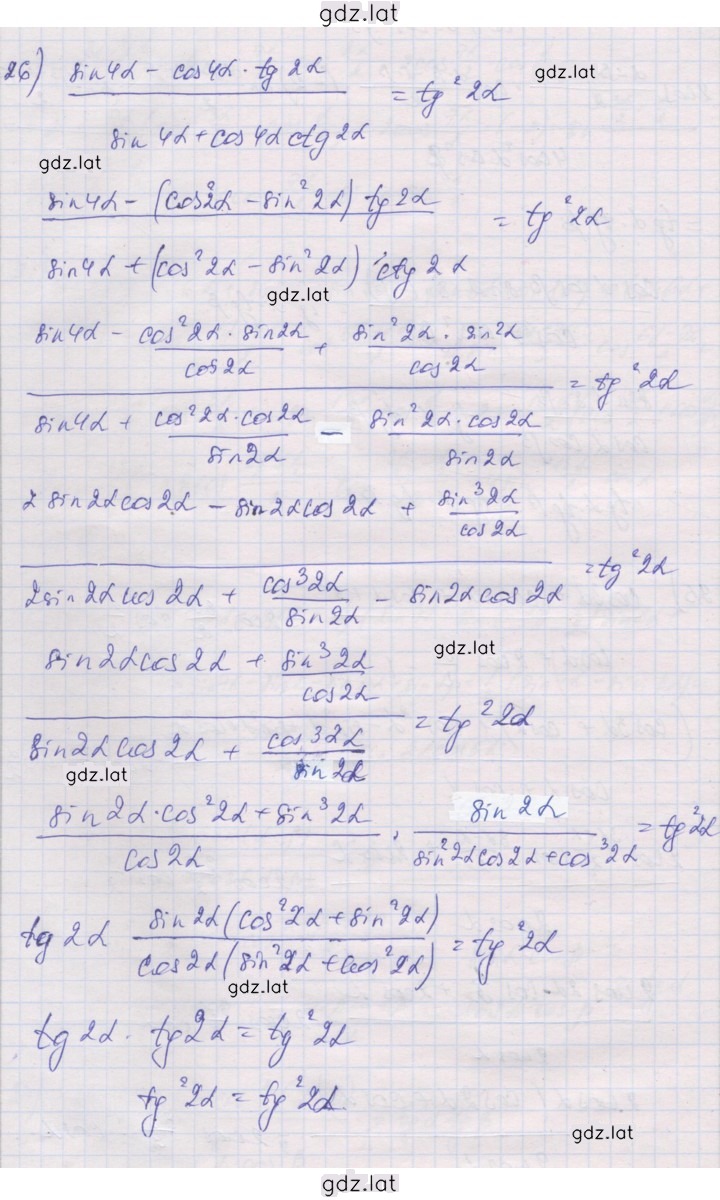 gdz.lat
26) (sin4α - cos4α · tg2α) / (sin4α + cos4α ctg2α) = tg²2α
gdz.lat
gdz.lat
(sin4α - (cos²2α - sin²2α) tg2α) / (sin4α + (cos²2α - sin²2α) · ctg2α) = tg²2α
gdz.lat
(sin4α - (cos²2α · sin2α)/(cos2α) + (sin²2α · sin2α)/(cos2α)) / (sin4α + (cos²2α · cos2α)/(sin2α) - (sin²2α · cos2α)/(sin2α)) = tg²2α
(2sin2αcos2α - sin2αcos2α + (sin³2α)/(cos2α)) / (2sin2αcos2α + (cos³2α)/(sin2α) - sin2αcos2α) = tg²2α
gdz.lat
(sin2αcos2α + (sin³2α)/(cos2α)) / (sin2αcos2α + (cos³2α)/(sin2α)) = tg²2α
gdz.lat
(sin2α · cos²2α + sin³2α)/(cos2α) · (sin2α)/(sin²2αcos2α + cos³2α) = tg²2α
tg2α (sin2α(cos²2α + sin²2α))/(cos2α(sin²2α + cos²2α)) = tg²2α
gdz.lat
tg2α · tg2α = tg²2α
tg²2α = tg²2α
gdz.lat
gdz.lat